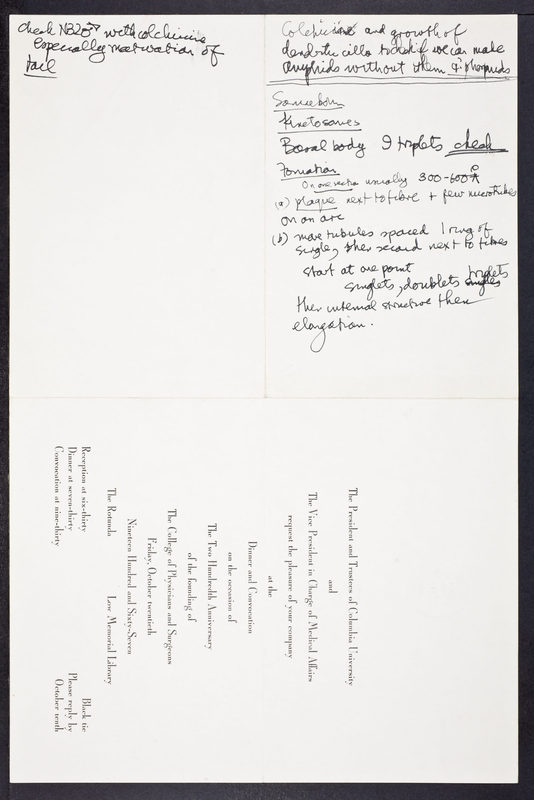 check NB20 with colchicine
especially motivation of
tail
Colchicine and growth of
dendritic cells to check if we can make
without them
Sonneborn
Kinetosomes
Basal body 9 triplets check
Formation
On one section usually 300-600 Å
(a) plaque next to fibre + few microtubules
on an arc
(b) more tubules spaced 1 ring of
singles, then second next to fibres
start at one point triplets
singlets, doublets singles
then internal structure then
elongation.
The President and Trustees of Columbia University
and
The Vice President in Charge of Medical Affairs
request the pleasure of your company
at the
Dinner and Convocation
on the occasion of
The Two Hundredth Anniversary
of the founding of
The College of Physicians and Surgeons
Friday, October twentieth
Nineteen Hundred and Sixty-Seven
The Rotunda Low Memorial Library
Reception at six-thirty Black tie
Dinner at seven-thirty Please reply by
Convocation at nine-thirty October tenth